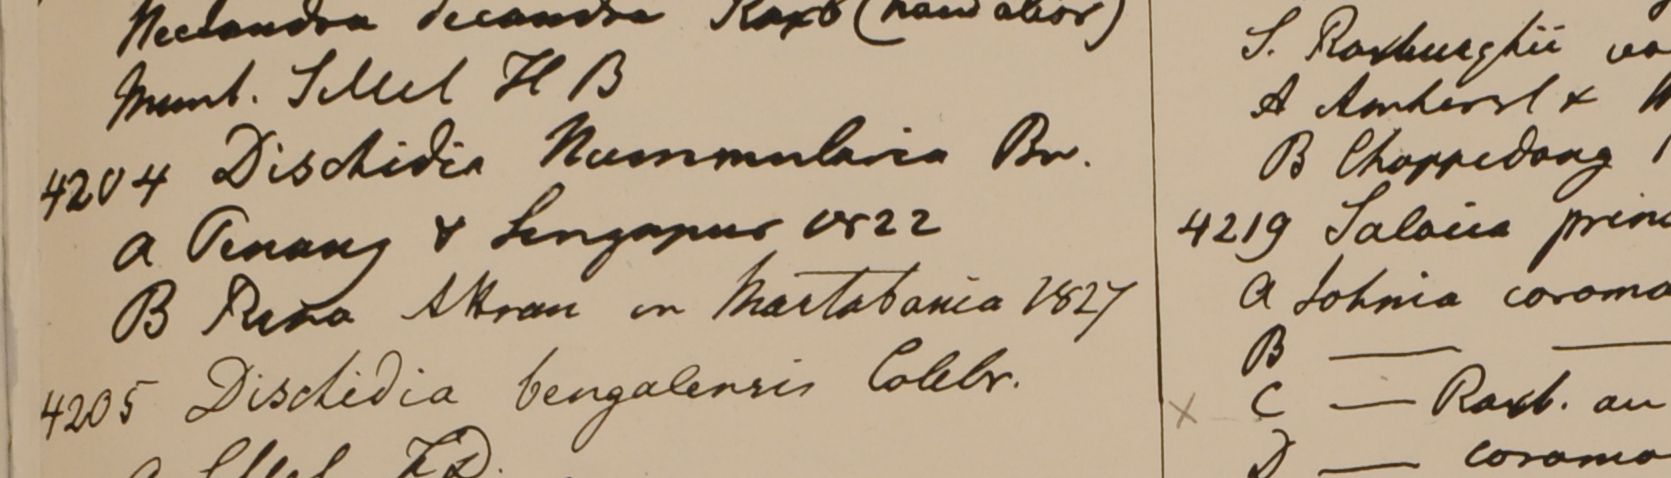 Nectandra decandra Roxb (haud alior)
Mont. Sillet H B
4204 Dischidia Nummularia Br.
a Penang & Singapur 1822
B Ripa Attran in Martabania 1827
4205 Dischidia bengalensis Colebr.
a Sillet F.D.
S. Roxburghii
A Amherst &
B Choppedong
4219 Salacia prin
a Johnia coroma
B — —
x C — Roxb. au
D — coroma